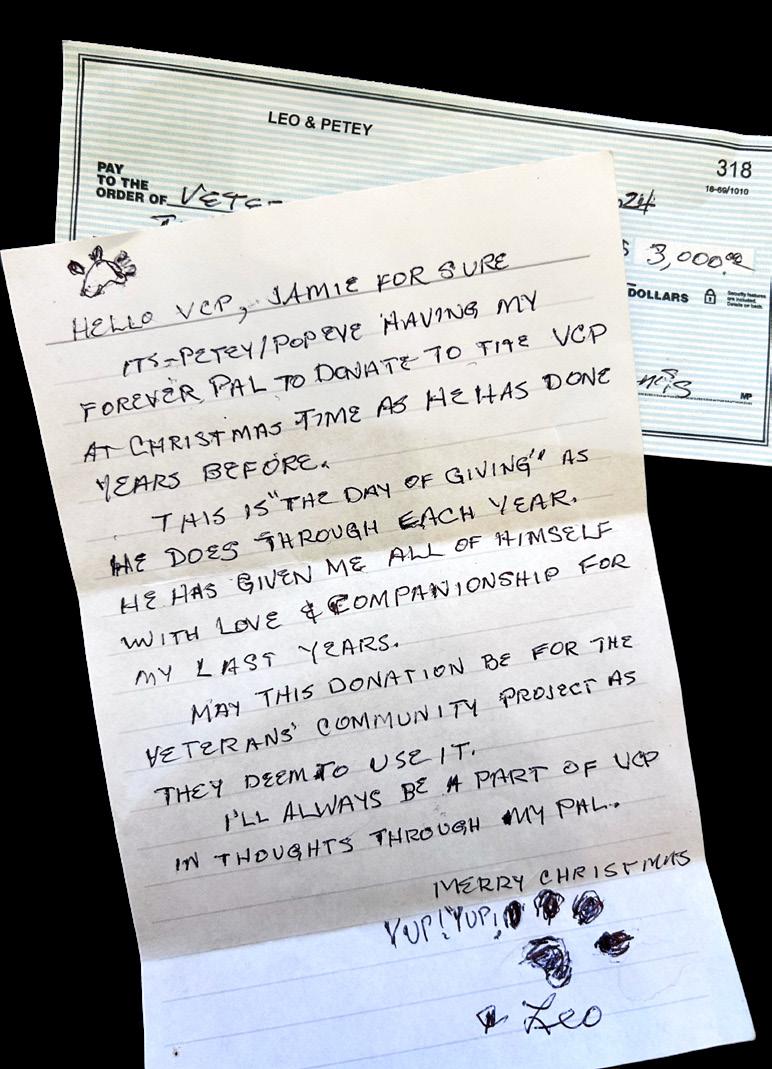 LEO & PETEY
318
18-69/1010
PAY
TO THE
ORDER OF VETE
24
$ 3,000.00
DOLLARS
Security features
are included.
Details on back.
MP
HELLO VCP, JAMIE FOR SURE
ITS-PETEY/POPEYE HAVING MY
FOREVER PAL TO DONATE TO THE VCP
AT CHRISTMAS TIME AS HE HAS DONE
YEARS BEFORE.
THIS IS "THE DAY OF GIVING" AS
HE DOES THROUGH EACH YEAR.
HE HAS GIVEN ME ALL OF HIMSELF
WITH LOVE & COMPANIONSHIP FOR
MY LAST YEARS.
MAY THIS DONATION BE FOR THE
VETERANS' COMMUNITY PROJECT AS
THEY DEEM TO USE IT.
I'LL ALWAYS BE A PART OF VCP
IN THOUGHTS THROUGH MY PAL.
MERRY CHRISTMAS
YUP! YUP!
& Leo